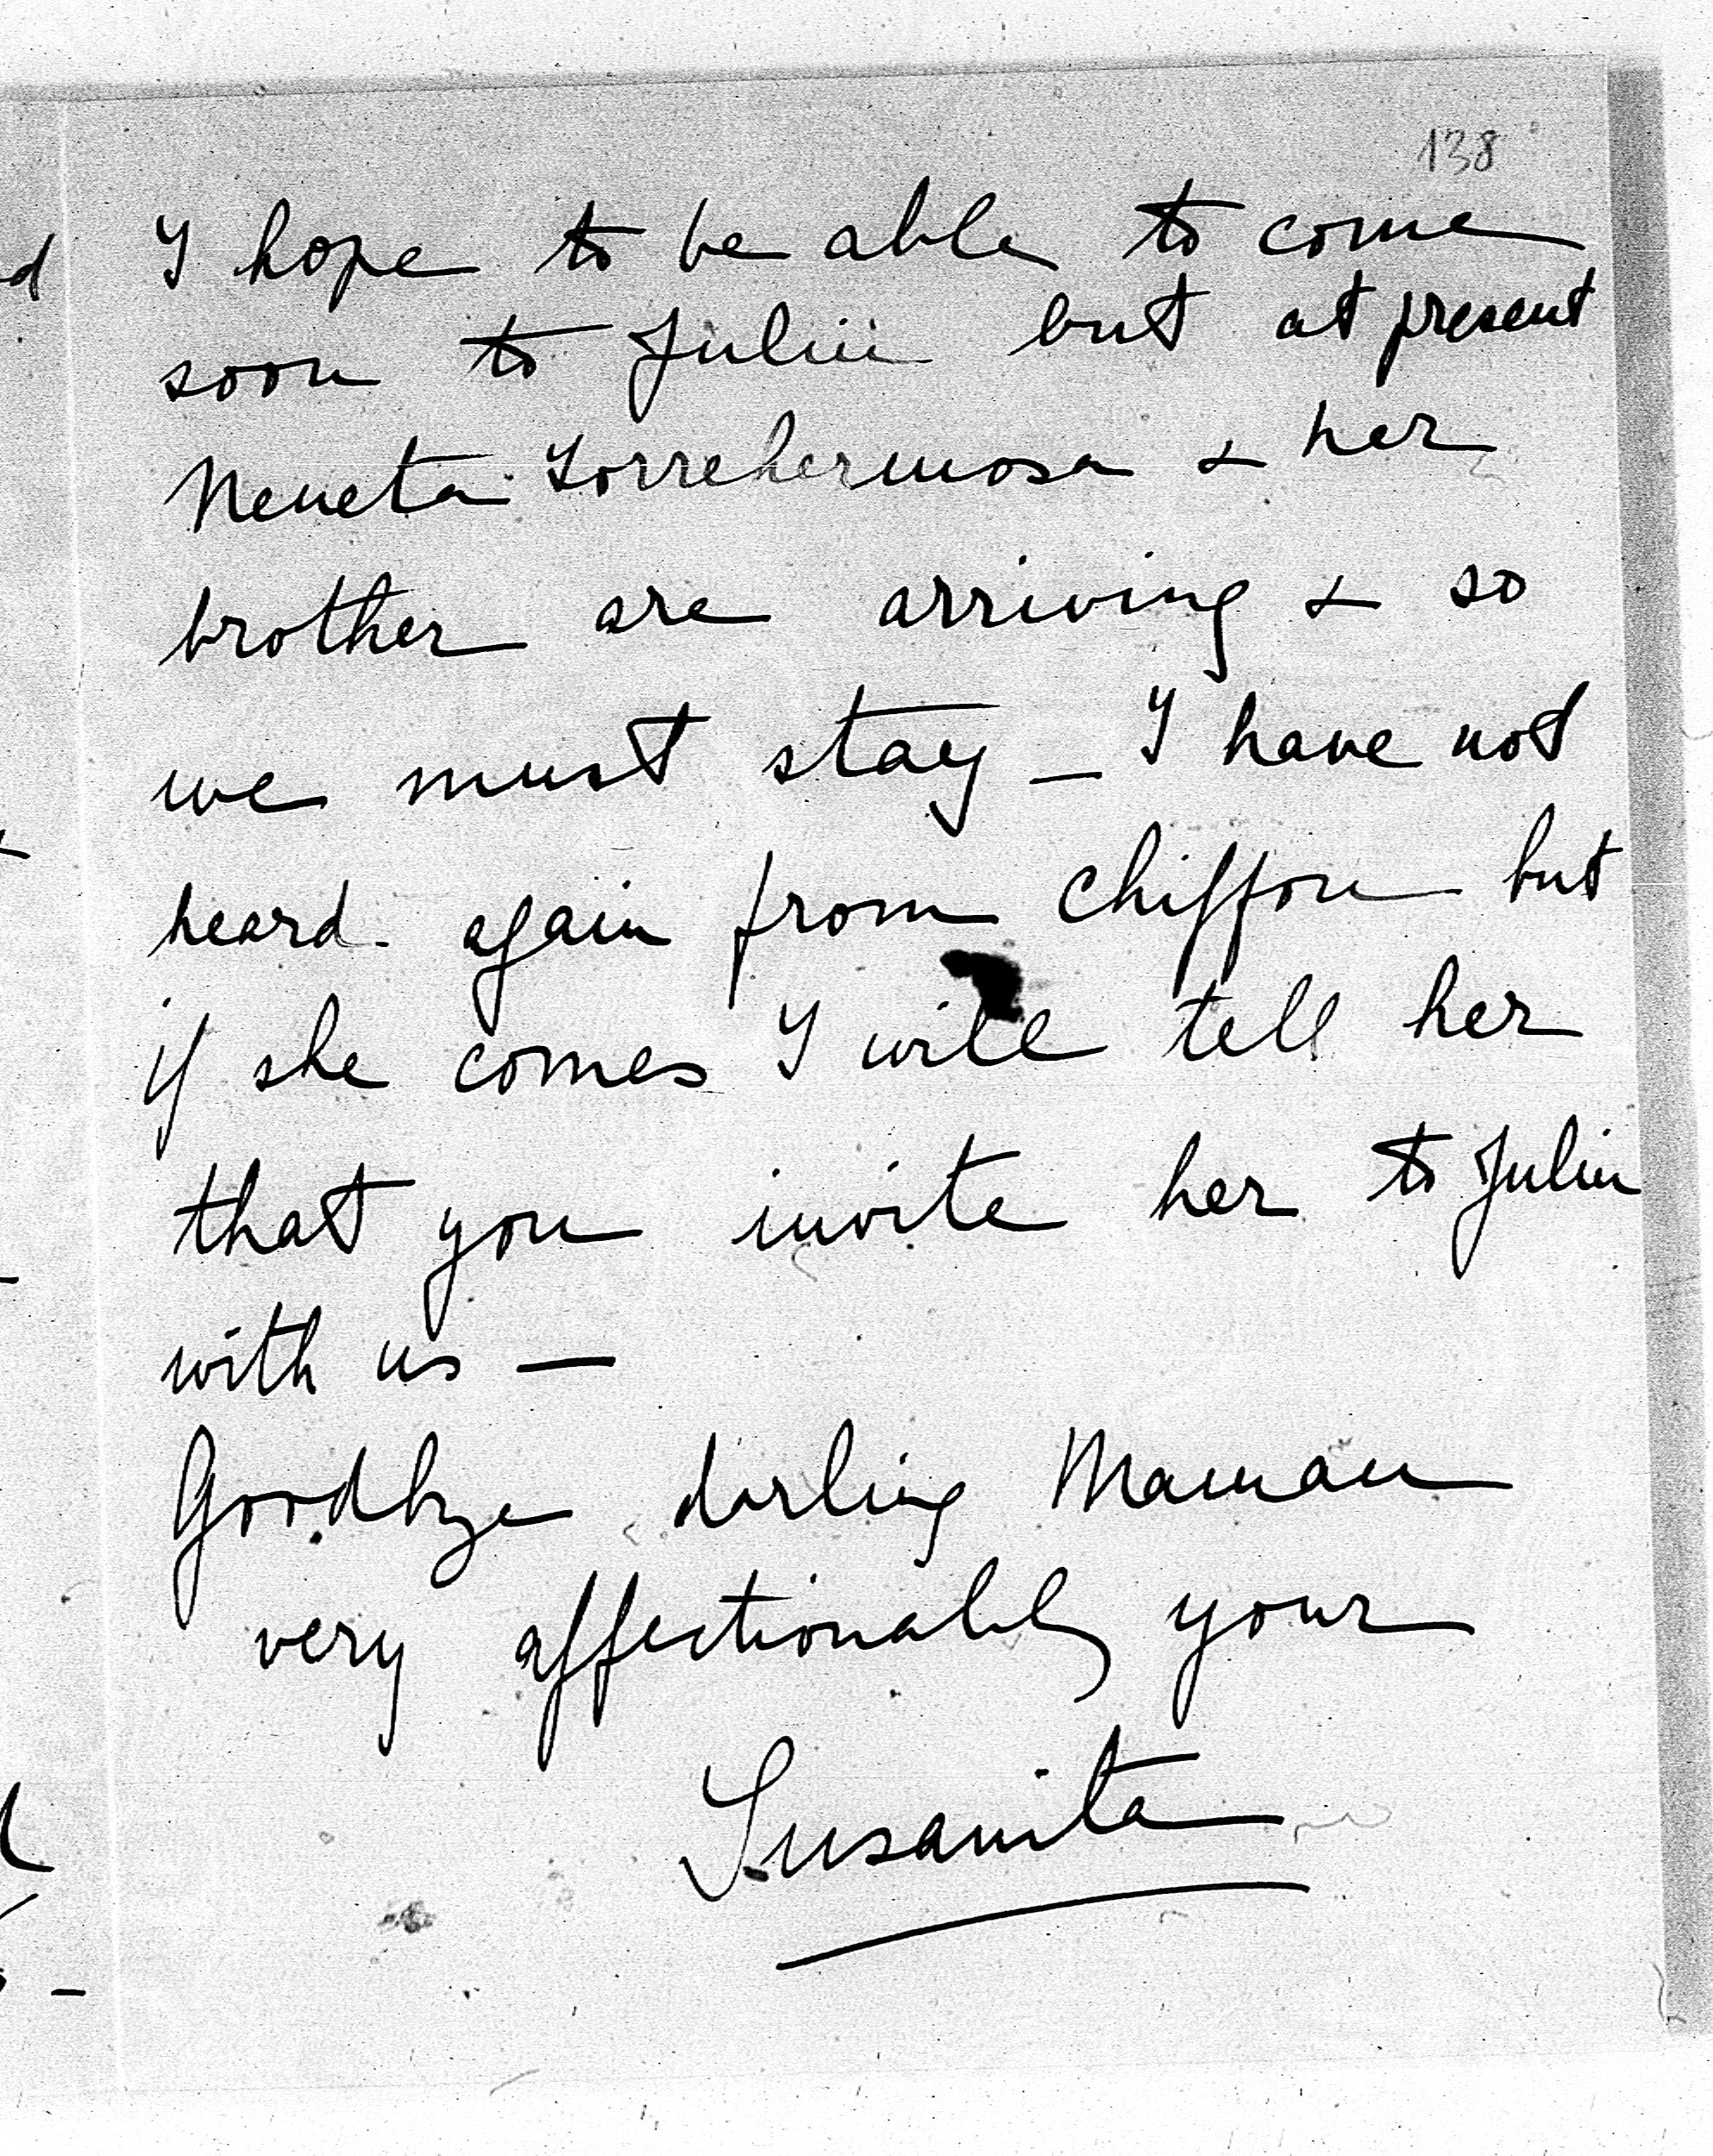 138
I hope to be able to come
soon to Julin but at present
Neneta Torrehermosa & her
brother are arriving & so
we must stay _ I have not
heard again from Chiffon but
if she comes I will tell her
that you invite her to Julin
with us —
Goodbye darling Maman
very affectionably your
Susanita